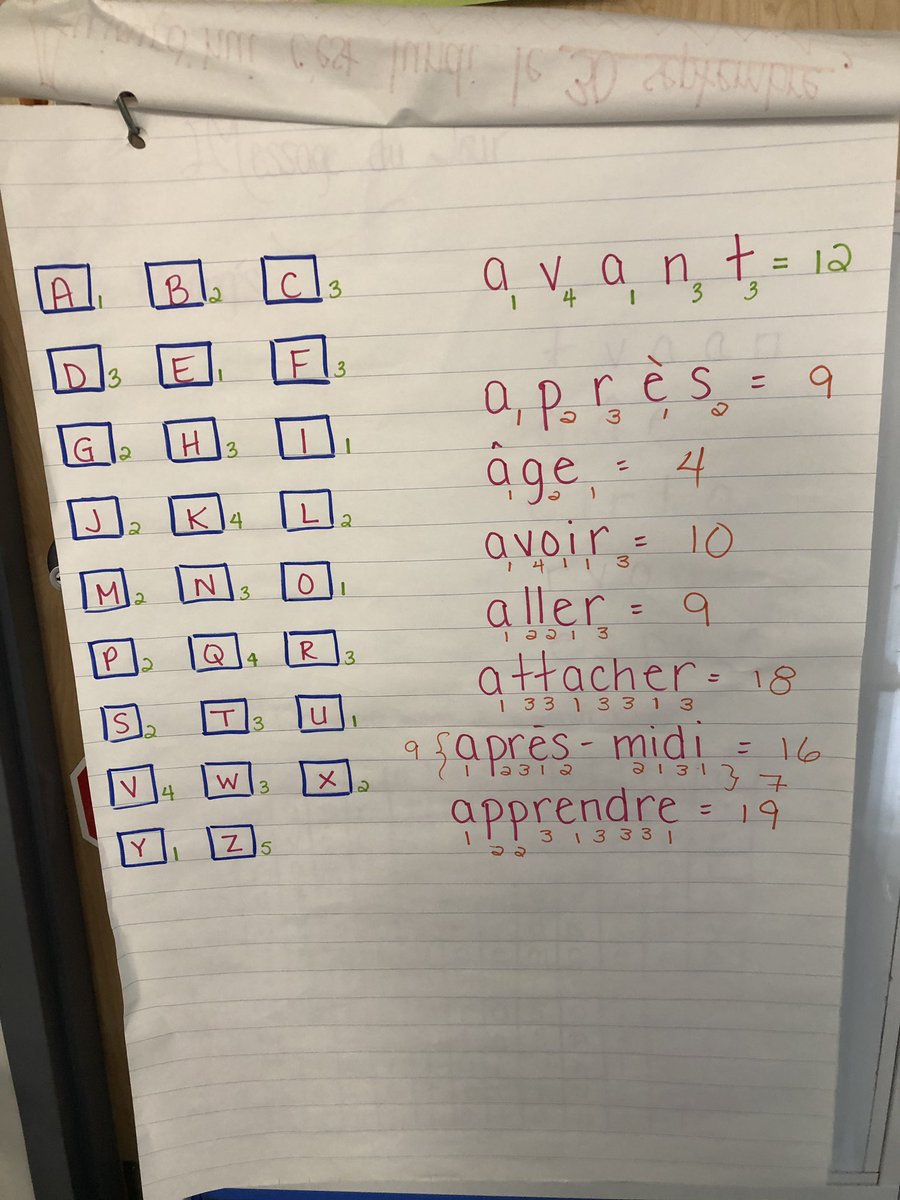 Aujourd'hui c'est lundi le 30 septembre.
Message du jour
A 1 B 2 C 3
D 3 E 1 F 3
G 2 H 3 I 1
J 2 K 4 L 2
M 2 N 3 O 1
P 2 Q 4 R 3
S 2 T 3 U 1
V 4 W 3 X 2
Y 1 Z 5
avant = 12
1 4 1 3 3
après = 9
1 2 3 1 2
âge = 4
1 2 1
avoir = 10
1 4 1 1 3
aller = 9
1 2 2 1 3
attacher = 18
1 3 3 1 3 3 1 3
9 { après-midi = 16
1 2 3 1 2 2 1 3 1 } 7
apprendre = 19
1 2 2 3 1 3 3 3 1